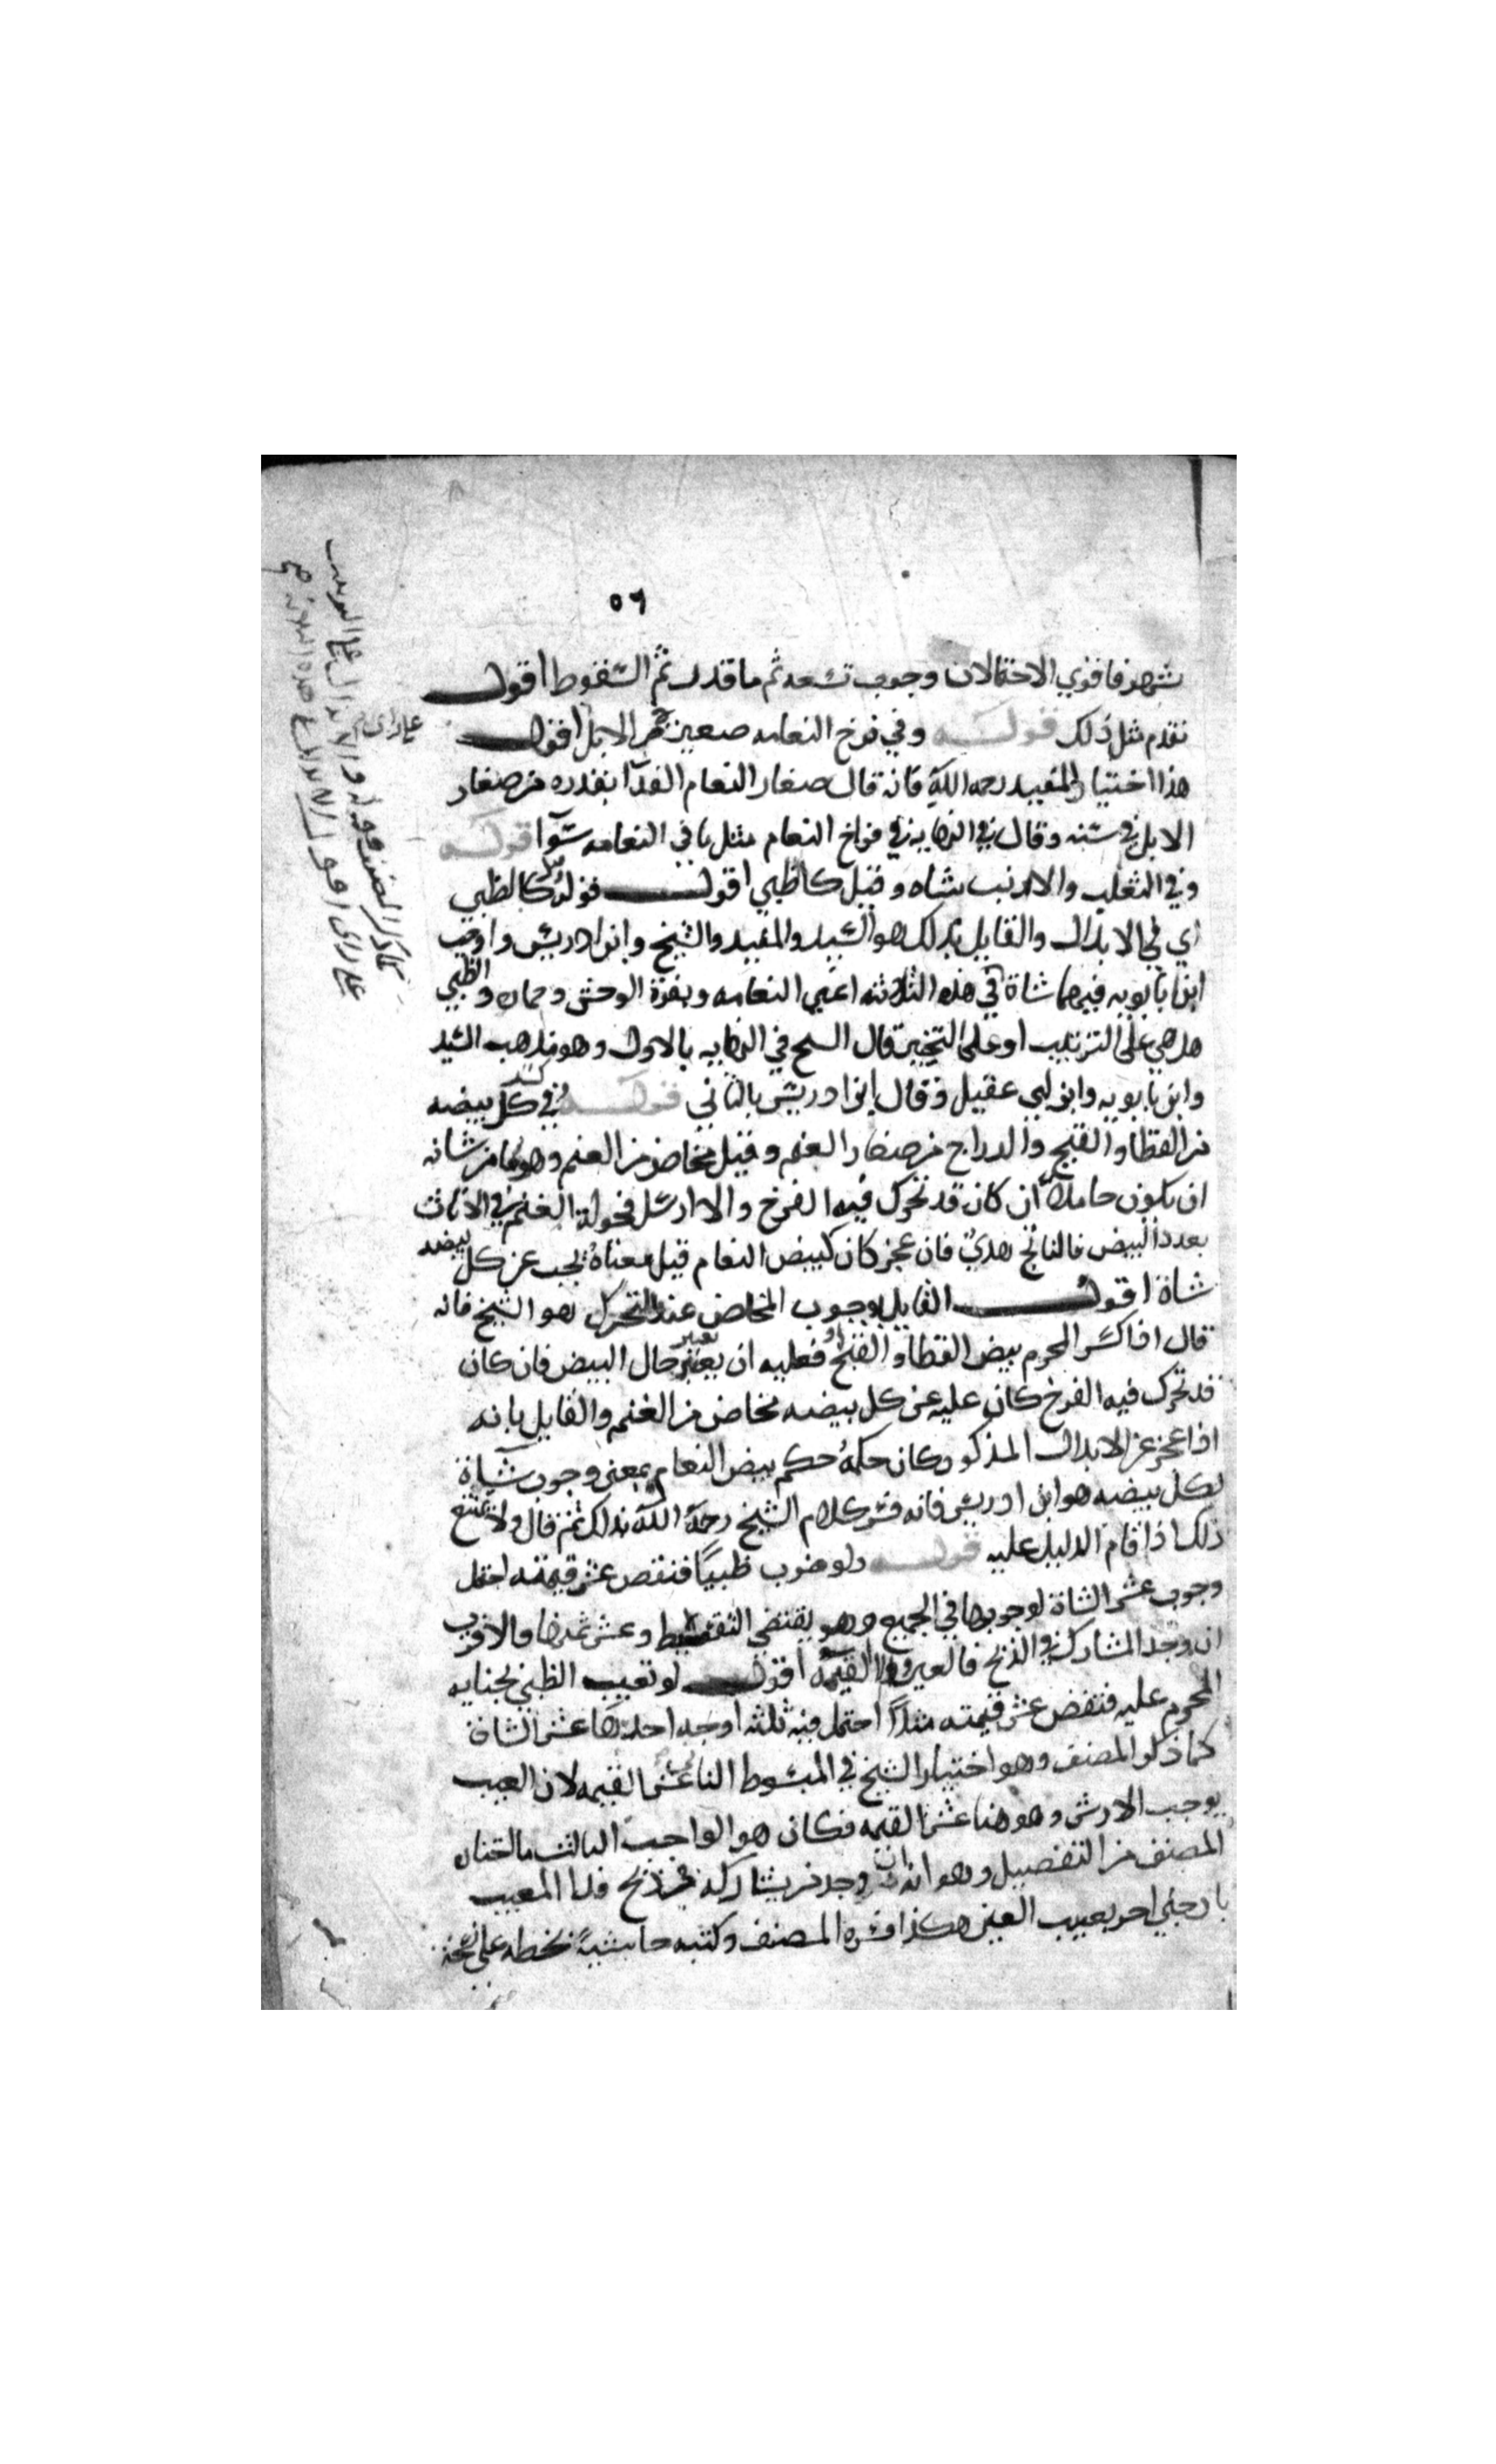 ٥٦
شهر فاقوي الاحتمالات وجوب تسعه ثم ما قدر ثم السقوط اقول
تقدم مثل ذلك قوله وفي فرخ النعامه صغير من الابل اقول
علی رای
هذا اختيار المفيد رحمه الله فانه قال صغار النعام الفدا بقدره من صغار
الابل في سنه وقال في النهايه في فراخ النعام مثل ما في النعامه سوآ قوله
وفي الثعلب والارنب شاه وقيل كالظبي اقول قوله كالظبي
اي في الابدال والقايل بذلك هو السيد والمفيد والشيخ وابن ادريس واوجب
ابنا بابويه فيهما شاة في هذه الثلاثه اعني النعامه وبقرة الوحش وحماره والظبي
هل هي على الترتيب او على التخيير قال الشيخ في النهايه بالاول وهو مذهب السيد
وابن بابويه وابن ابي عقيل وقال ابن ادريس بالثاني قوله في كل بيضه
من القطا والقبج والدراج من صغار الغنم وقيل مخاض من الغنم وهو ما من شانه
ان يكون حاملا ان كان قد تحرك فيه الفرخ والا ارسل فحولة الغنم في الاناث
بعدد البيض فالناتج هدي فان عجز كان كبيض النعام قيل معناه يجب عن كل بيضه
شاة اقول القايل بوجوب المخاض عند التحرك هو الشيخ فانه
قال اذا كسر المحرم بيض القطا او القبج فعليه ان يعتبر حال البيض فان كان
قد تحرك فيه الفرخ كان عليه عن كل بيضه مخاض من الغنم والقايل بانه
اذا عجز عن الابدال المذكور كان حكمه حكم بيض النعام بمعنى وجوب شاة
لكل بيضه هو ابن ادريس فانه فسر كلام الشيخ رحمه الله بذلك ثم قال ولا يمتنع
ذلك اذا قام الدليل عليه قوله ولو ضرب ظبيًا فنقص عشر قيمته احتمل
وجوب عشر الشاة لوجوبها في الجميع وهو يقتضي التقسيط وعشر ثمنها والاقرب
ان وجد المشارك في الذبح فالعين والا القيمه اقول لو تعيب الظبي بجنايه
المحرم عليه فنقص عشر قيمته مثلاً احتمل فيه ثلثه اوجه احدها عشر الشاة
كما ذكره المصنف وهو اختيار الشيخ في المبسوط الثاني عشر القيمه لان العيب
يوجب الارش وهو هنا عشر القيمه فكان هو الواجب الثالث ما اختاره
المصنف من التفصيل وهو انه ان وجد من يشاركه في ذبح فدا المعيب
العين هكذا فسره المصنف وكتبه حاشيةً بخطه على نسخة